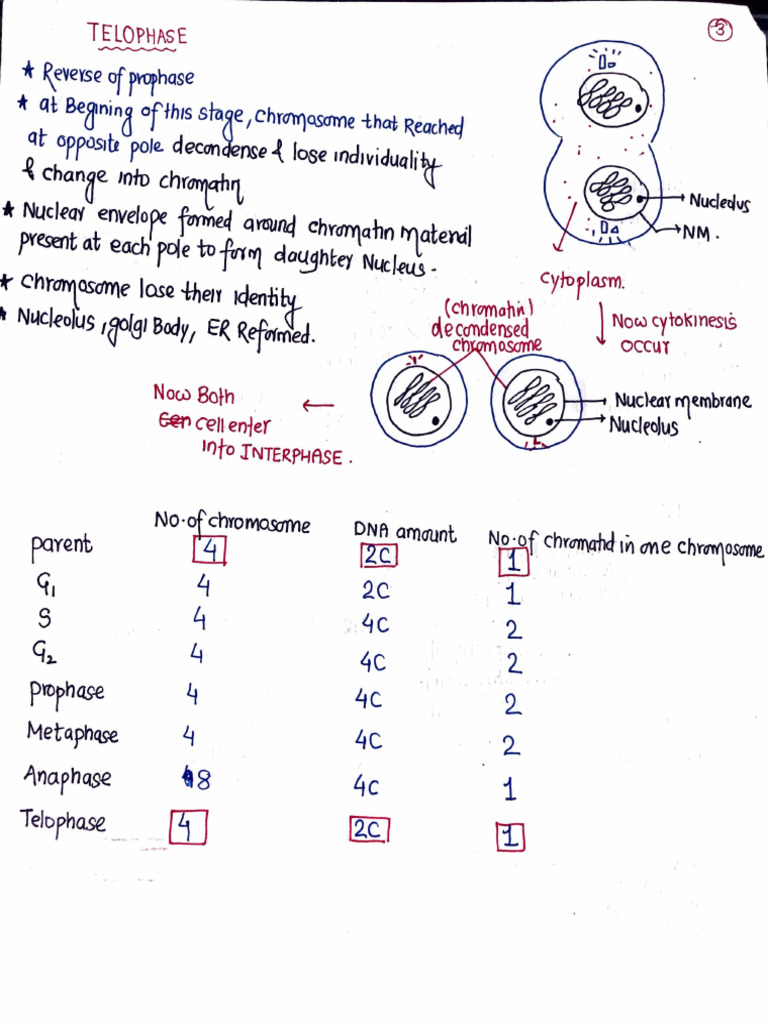 3
TELOPHASE
★ Reverse of prophase
★ at Begining of this stage, chromosome that Reached
at opposite pole decondense & lose individuality
& change into chromatin
★ Nuclear envelope formed around chromatin material
present at each pole to form daughter Nucleus.
★ chromosome lose their identity
★ Nucleolus, golgi Body, ER Reformed.
Nucleolus
NM.
cytoplasm.
Now cytokinesis
occur
(chromatin)
decondensed
chromosome
Nuclear membrane
Nucleolus
Now Both
cell enter
into INTERPHASE.
No. of chromosome DNA amount No. of chromatid in one chromosome
parent 4 2C 1
G1 4 2C 1
S 4 4C 2
G2 4 4C 2
prophase 4 4C 2
Metaphase 4 4C 2
Anaphase 8 4C 1
Telophase 4 2C 1